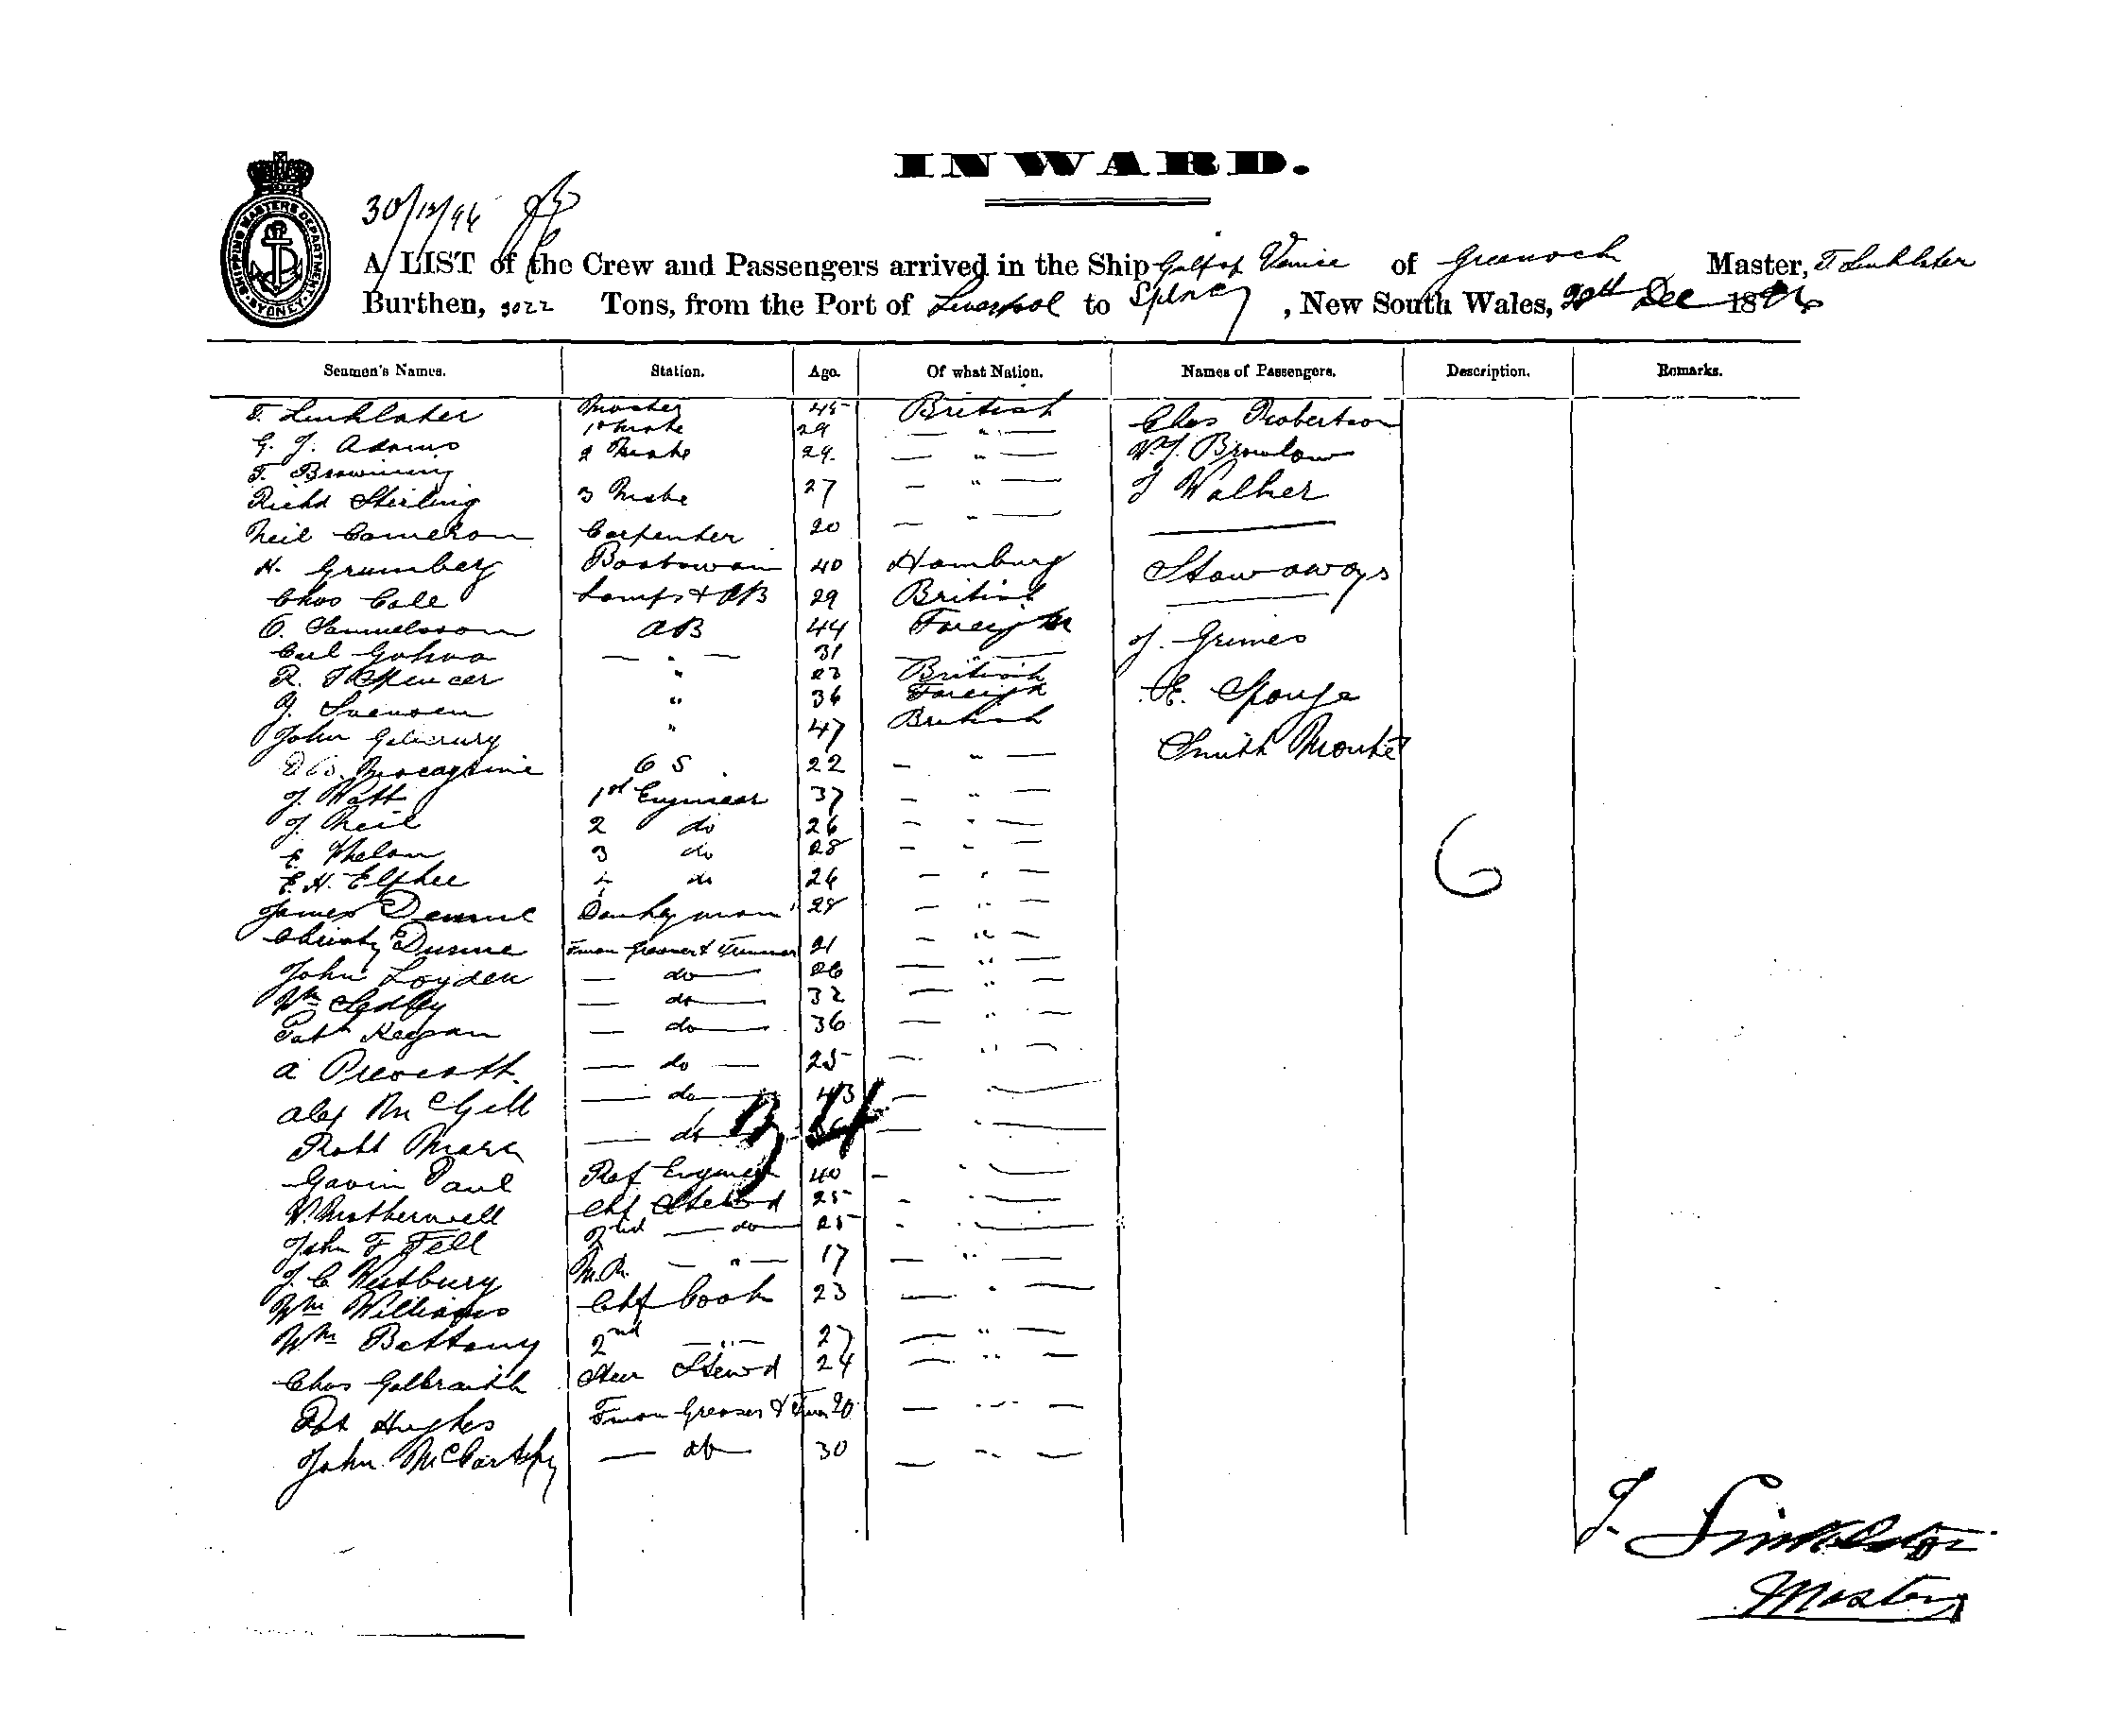 INWARD.
SHIPPING MASTERS DEPARTMENT. SYDNEY.
30/12/96
A LIST of the Crew and Passengers arrived in the Ship Gulf of Venice of Greenock Master, T Linklater
Burthen, 3022 Tons, from the Port of Liverpool to Sydney, New South Wales, Dec 1896
Seamen's Names. Station. Age. Of what Nation. Names of Passengers. Description. Remarks.
T. Linklater Master 45 British Chas Robertson
G. J. Adams 1st Mate 29 — " — W.J. Brownlow
T. Browning 2 Mate 29. — " — J Walker
Richd Stirling 3 Mate 27 — " —
Neil Cameron Carpenter 20 — " —
H. Grumberg Boatswain 40 Hamburg Stowaways
Chas Cole Lamps & AB 29 British
O. Samuelsson AB 44 Foreign J. Grimes
Carl — " — 31 — " —
R. Spencer " 23 British E. Sponge
J. Svensen " 36 Foreign
John " 47 British Smith
O S. 22 — " —
J. Watt 1st Engineer 37 — " —
J. Neil 2 do 26 — " —
E. Whelan 3 do 28 — " —
E. H. Elphee 4 do 26 — " —
James Donkeyman 28 — " —
Christy Dunne Fman Greaser & Trimmer 21 — " —
John Loyden — do — 26 — " —
Wm Sedley — do — 32 — " —
Patk Keegan — do — 36 — " —
A — do — 25 — " —
Alex McGill — do — 43 — " —
Robt — do — — " —
Gavin Paul Ref Engineer 40 — " —
W. Motherwell Chf Steward 25 — " —
John F Fell 2nd — do — 25 — " —
J. C. Westbury M.R. — " — 17 — " —
Wm Williams Chf Cook 23 — " —
Wm Bottany 2nd — " — 27 — " —
Chas Galbraith Stew d 24 — " —
Pat Hughes Fman Greaser & 20 — " —
John McCarthy — do — 30 — " —
6
T. Linklater
Master